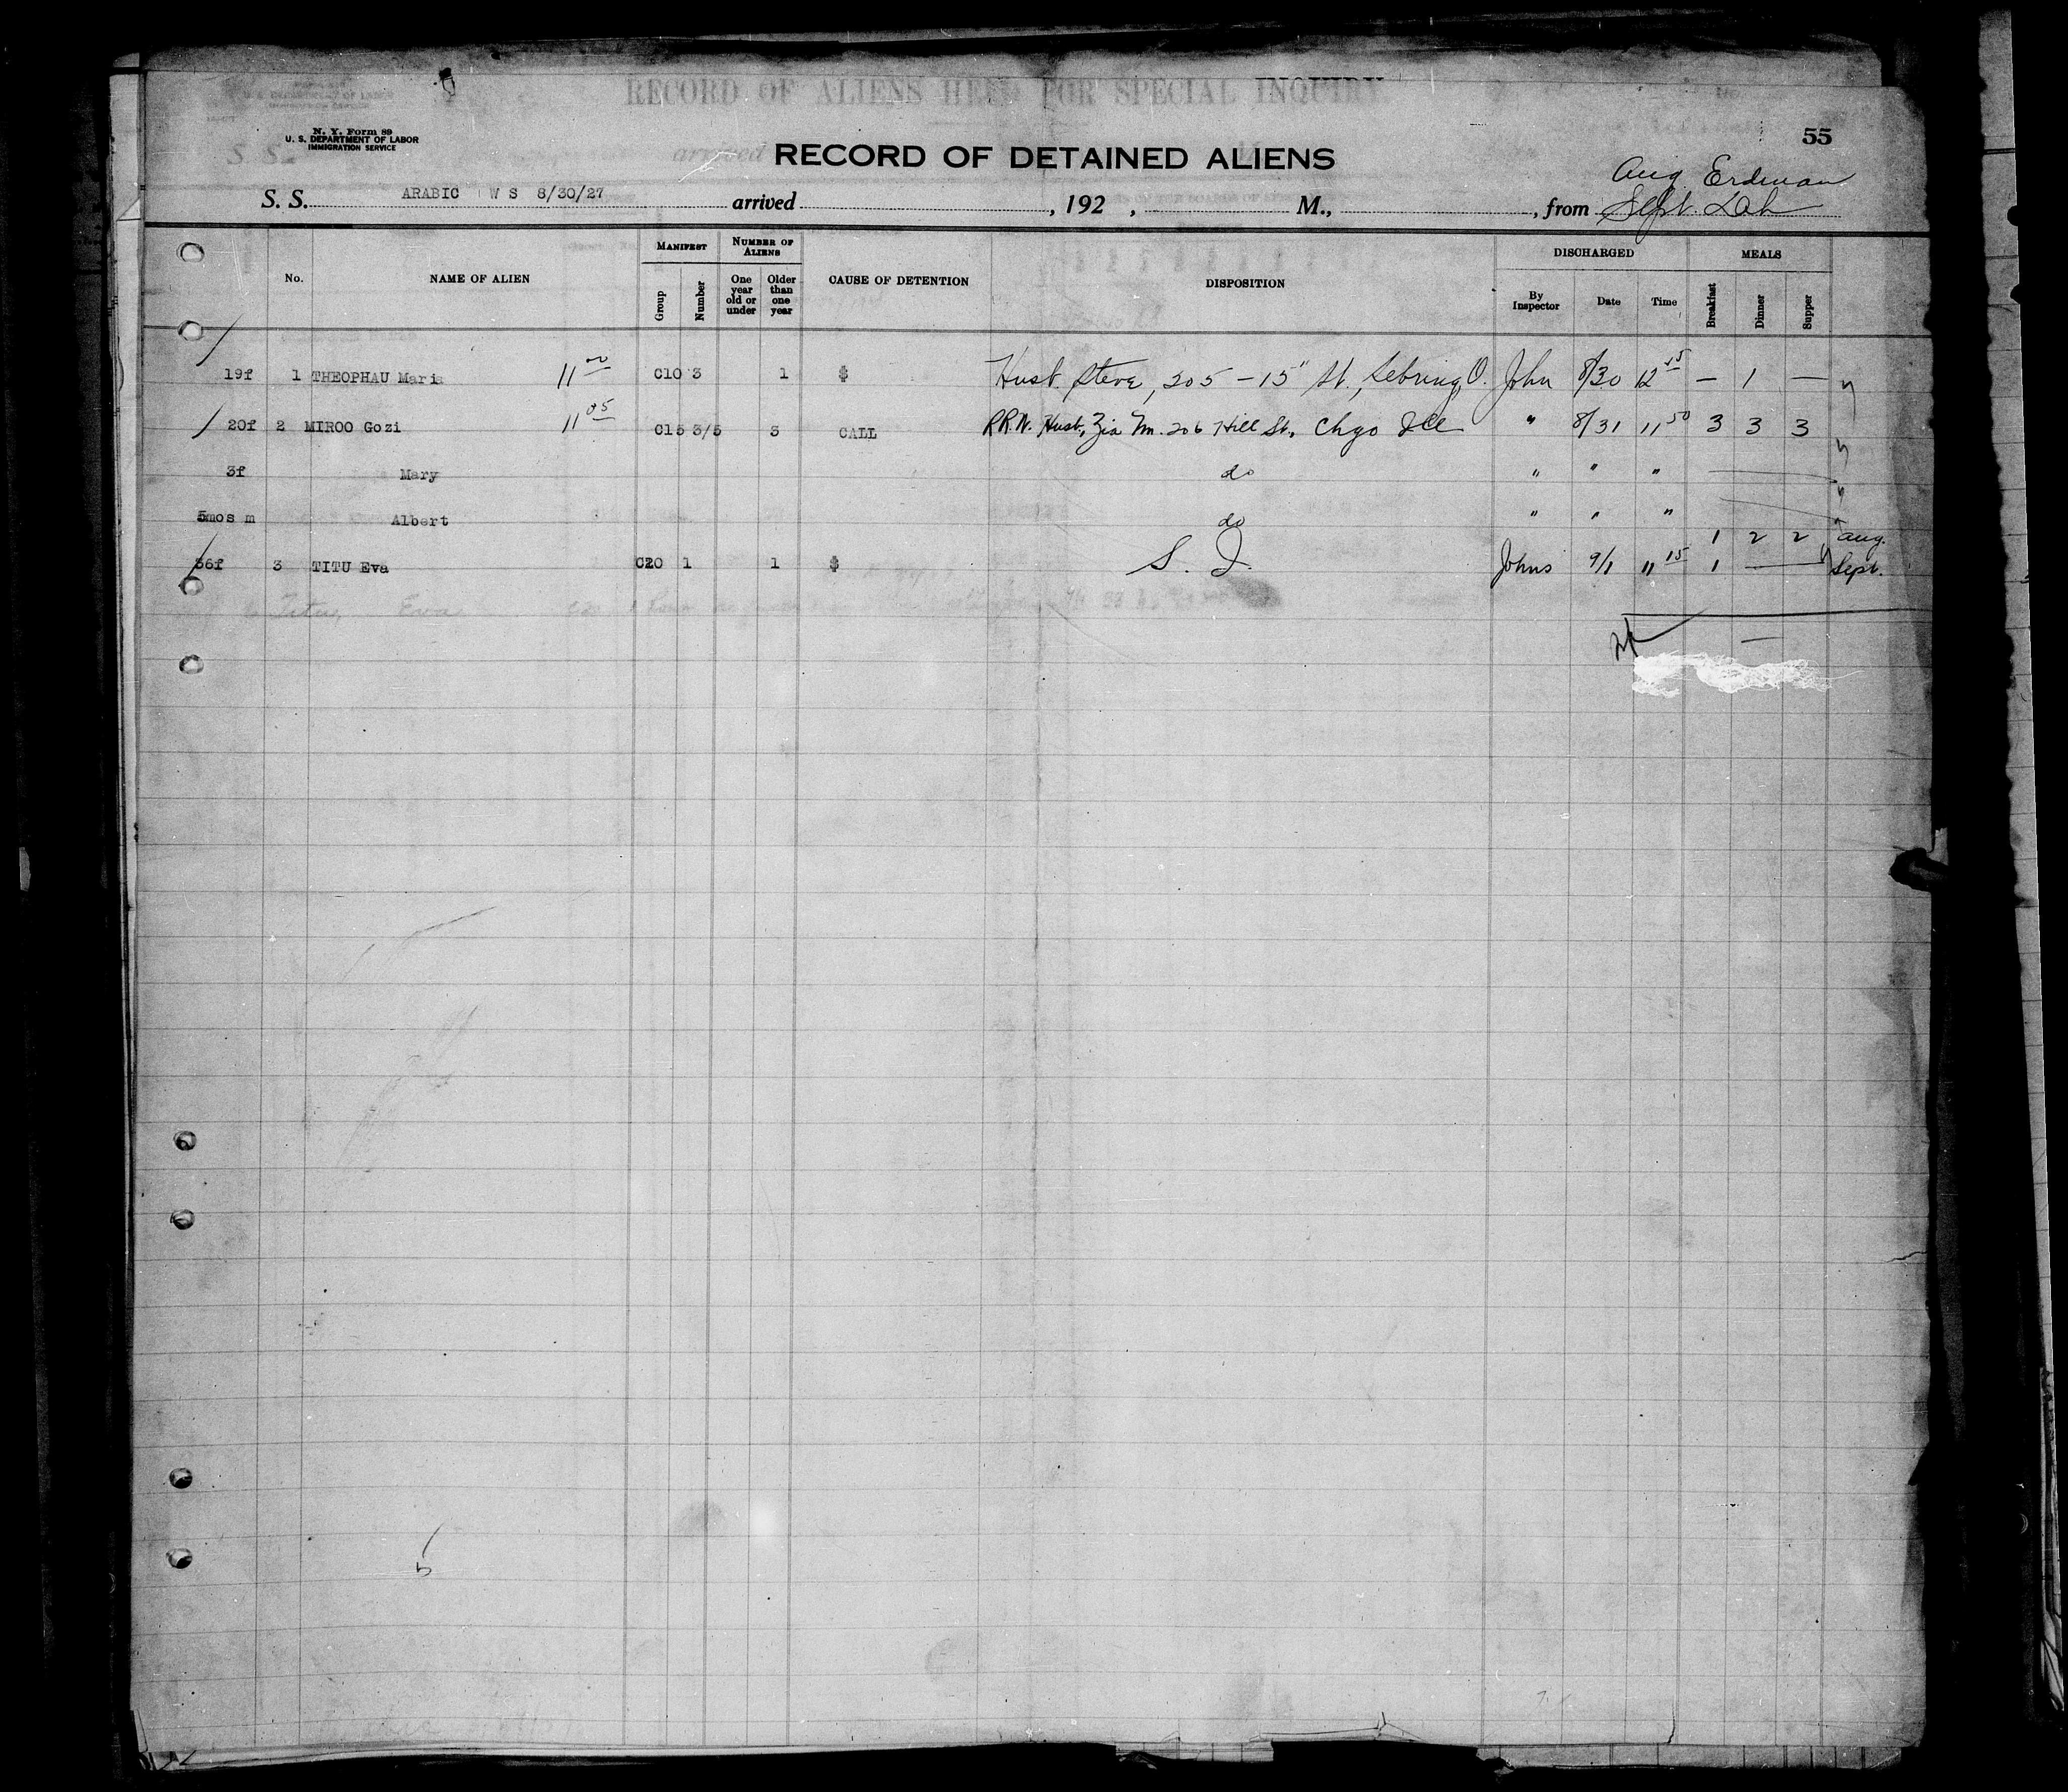 RECORD OF ALIENS HELD FOR SPECIAL INQUIRY.
N. Y. Form 89
U. S. DEPARTMENT OF LABOR
IMMIGRATION SERVICE
55
RECORD OF DETAINED ALIENS
Aug Erdman
S. S. ARABIC W S 8/30/27 arrived , 192 , M., , from Sept.
No. NAME OF ALIEN MANIFEST Group Number NUMBER OF ALIENS One year old or under Older than one year CAUSE OF DETENTION DISPOSITION DISCHARGED By Inspector Date Time MEALS Breakfast Dinner Supper
19f 1 THEOPHAU Maria 11 00 C10 3 1 $ Husb. Steve, 205 - 15" St., Sebring, O. John 8/30 12 15 — 1 —
20f 2 MIROO Gozi 11 05 C15 3/5 3 CALL RR.N. Husb., Zia M. 206 Hill St., Chgo Ill " 8/31 11 50 3 3 3
3f Mary do " " "
5mos m Albert do " " "
1 2 2 Aug.
36f 3 TITU Eva C20 1 1 $ S. I. Johns 9/1 11 15 1 — Sept.
Titu, Eva
5